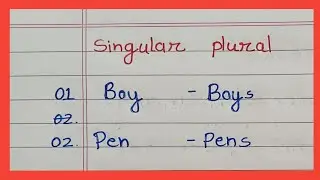 Singular plural
01 Boy - Boys
02.
02. Pen - Pens